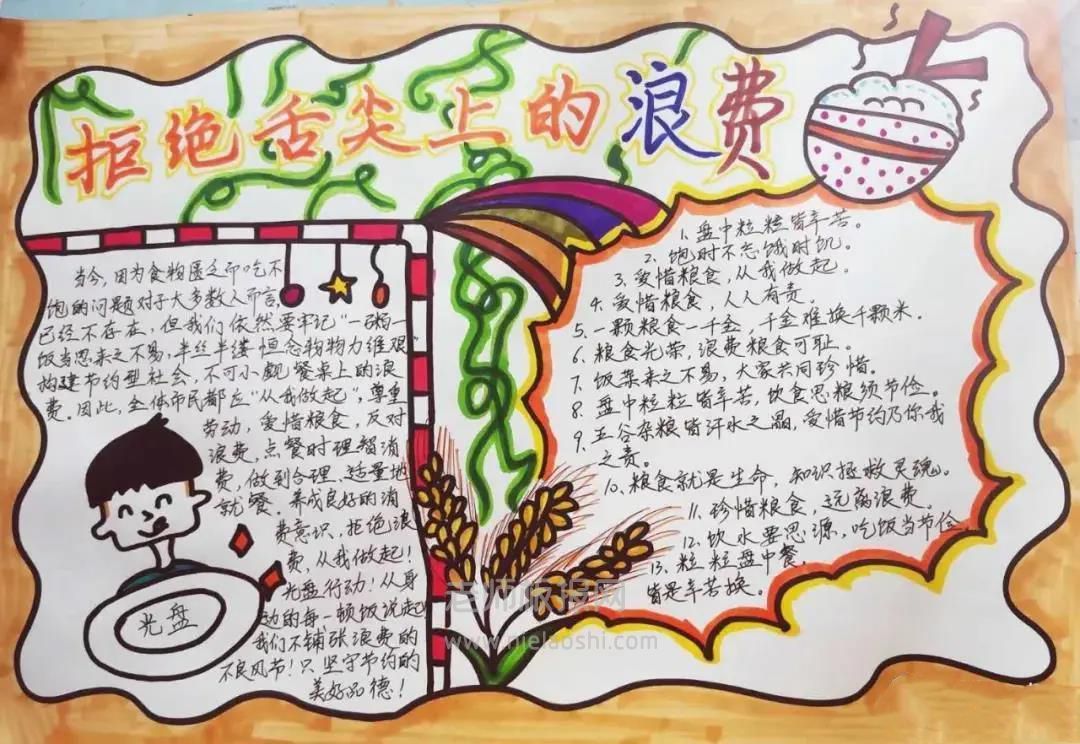 拒绝舌尖上的浪费
当今,因为食物匮乏而吃不
饱的问题对于大多数人而言,
已经不存在,但我们依然要牢记"一粥一
饭当思来之不易,半丝半缕恒念物物力维艰"
构建节约型社会,不可小觑餐桌上的浪
费。因此,全体市民都应"从我做起",尊重
劳动,爱惜粮食,反对
浪费,点餐时理智消
费,做到合理、适量地
就餐。养成良好的消
费意识,拒绝浪
费,从我做起!
光盘行动!从身
边的每一顿饭说起
我们不铺张浪费的
不良风节!只坚守节约的
美好品德!
光盘
1、盘中粒粒皆辛苦。
2、饱时不忘饿时饥。
3、爱惜粮食,从我做起。
4、爱惜粮食,人人有责。
5、一颗粮食一千金,千金难换千颗米。
6、粮食光荣,浪费粮食可耻。
7、饭菜来之不易,大家共同珍惜。
8、盘中粒粒皆辛苦,饮食思粮须节俭。
9、五谷杂粮皆汗水之晶,爱惜节约乃你我
之责。
10、粮食就是生命,知识拯救灵魂。
11、珍惜粮食,远离浪费。
12、饮水要思源,吃饭当节俭
13、粒粒盘中餐,
皆是辛苦换。
老师板报网
www.njelaoshi.com